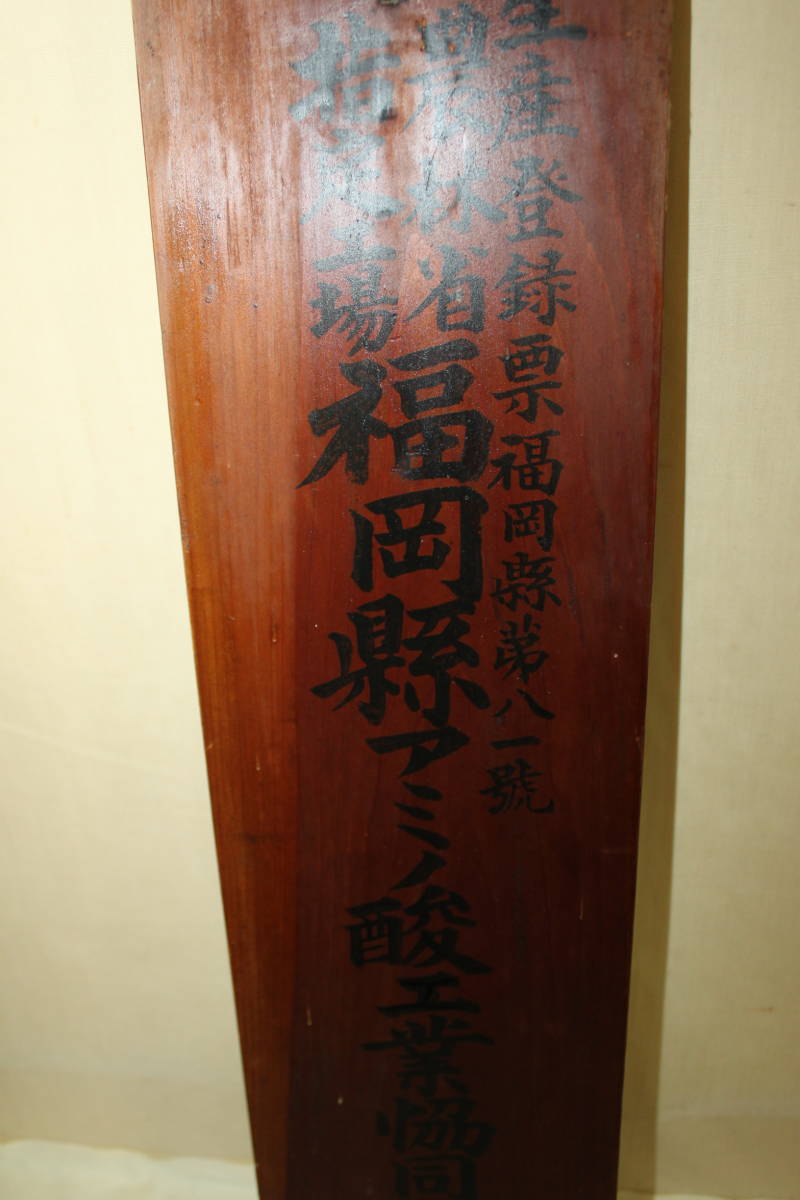 生産登録票福岡縣第八一號
農林省
指定工場
福岡縣アミノ酸工業協同